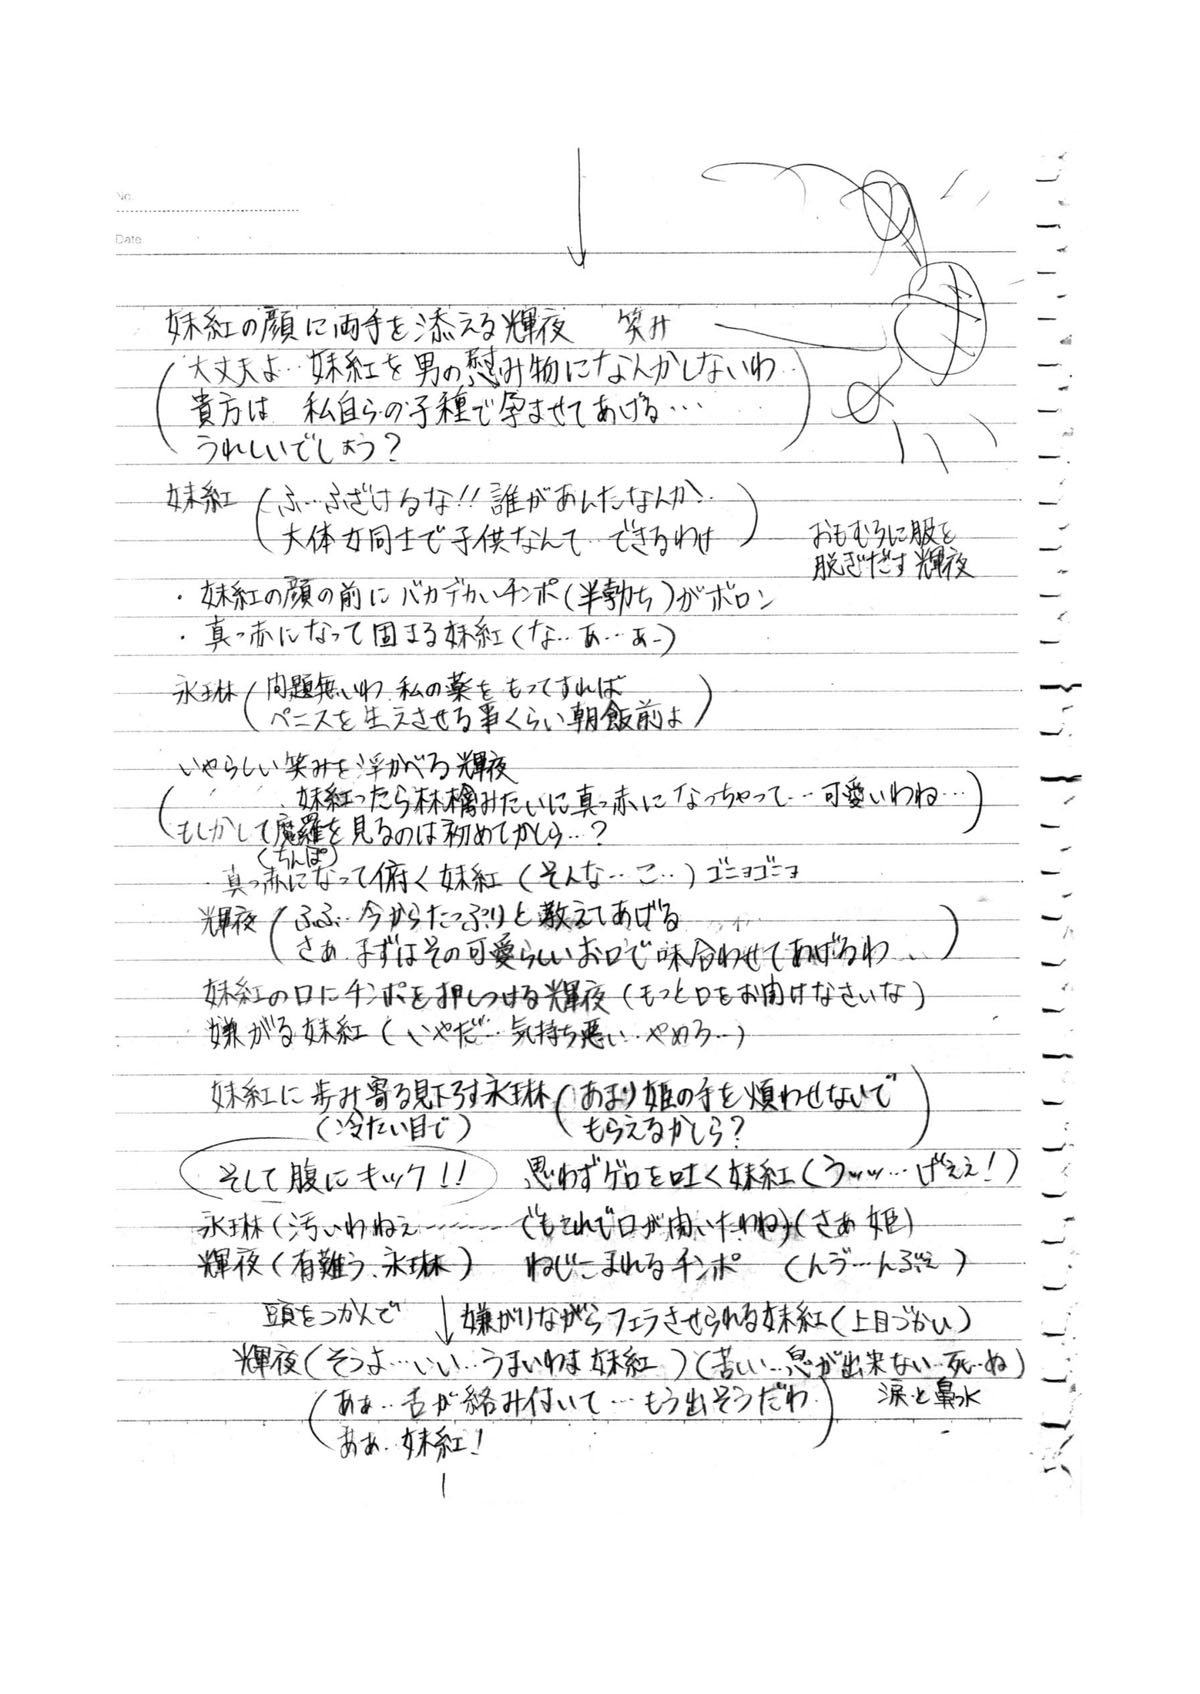 No.
Date
妹紅の顔に両手を添える輝夜 笑み
(大丈夫よ… 妹紅を男の慰み物になんかしないわ…
貴方は 私自らの子種で孕ませてあげる…
うれしいでしょう?)
妹紅 (ふ…ふざけるな!! 誰があんたなんか…
大体女同士で子供なんて… できるわけ)
おもむろに服を
脱ぎだす輝夜
・妹紅の顔の前にバカデカいチンポ(半勃ち)がボロン
・真っ赤になって固まる妹紅(な…あ…あー)
永琳(問題無いわ 私の薬をもってすれば
ペニスを生えさせる事くらい朝飯前よ)
いやらしい笑みを浮かべる輝夜
(妹紅ったら林檎みたいに真っ赤になっちゃって…可愛いわね…
もしかして魔羅を見るのは初めてかしら…?)
(ちんぽ)
・真っ赤になって俯く妹紅(そんな…こ…)ゴニョゴニョ
輝夜(ふふ… 今からたっぷりと教えてあげる
さあ まずはその可愛らしいお口で味合わせてあげるわ…)
妹紅の口にチンポを押しつける輝夜(もっと口をお開けなさいな)
嫌がる妹紅(いやだ… 気持ち悪い… やめろ…)
妹紅に歩み寄る見下ろす永琳(あまり姫の手を煩わせないで
(冷たい目で) もらえるかしら?)
そして腹にキック!! 思わずゲロを吐く妹紅(うッッ…げぇぇ!)
永琳(汚いわねぇ……… でもこれで口が開いたわね)(さあ 姫)
輝夜(有難う、永琳) ねじこまれるチンポ (んう゛…んぶぇ)
頭をつかんで ↓ 嫌がりながらフェラさせられる妹紅(上目づかい)
輝夜(そうよ…いい…うまいわよ妹紅)(苦しい…息が出来ない…死…ぬ)
(あぁ…舌が絡み付いて…もう出そうだわ 涙と鼻水
ああ…妹紅!)